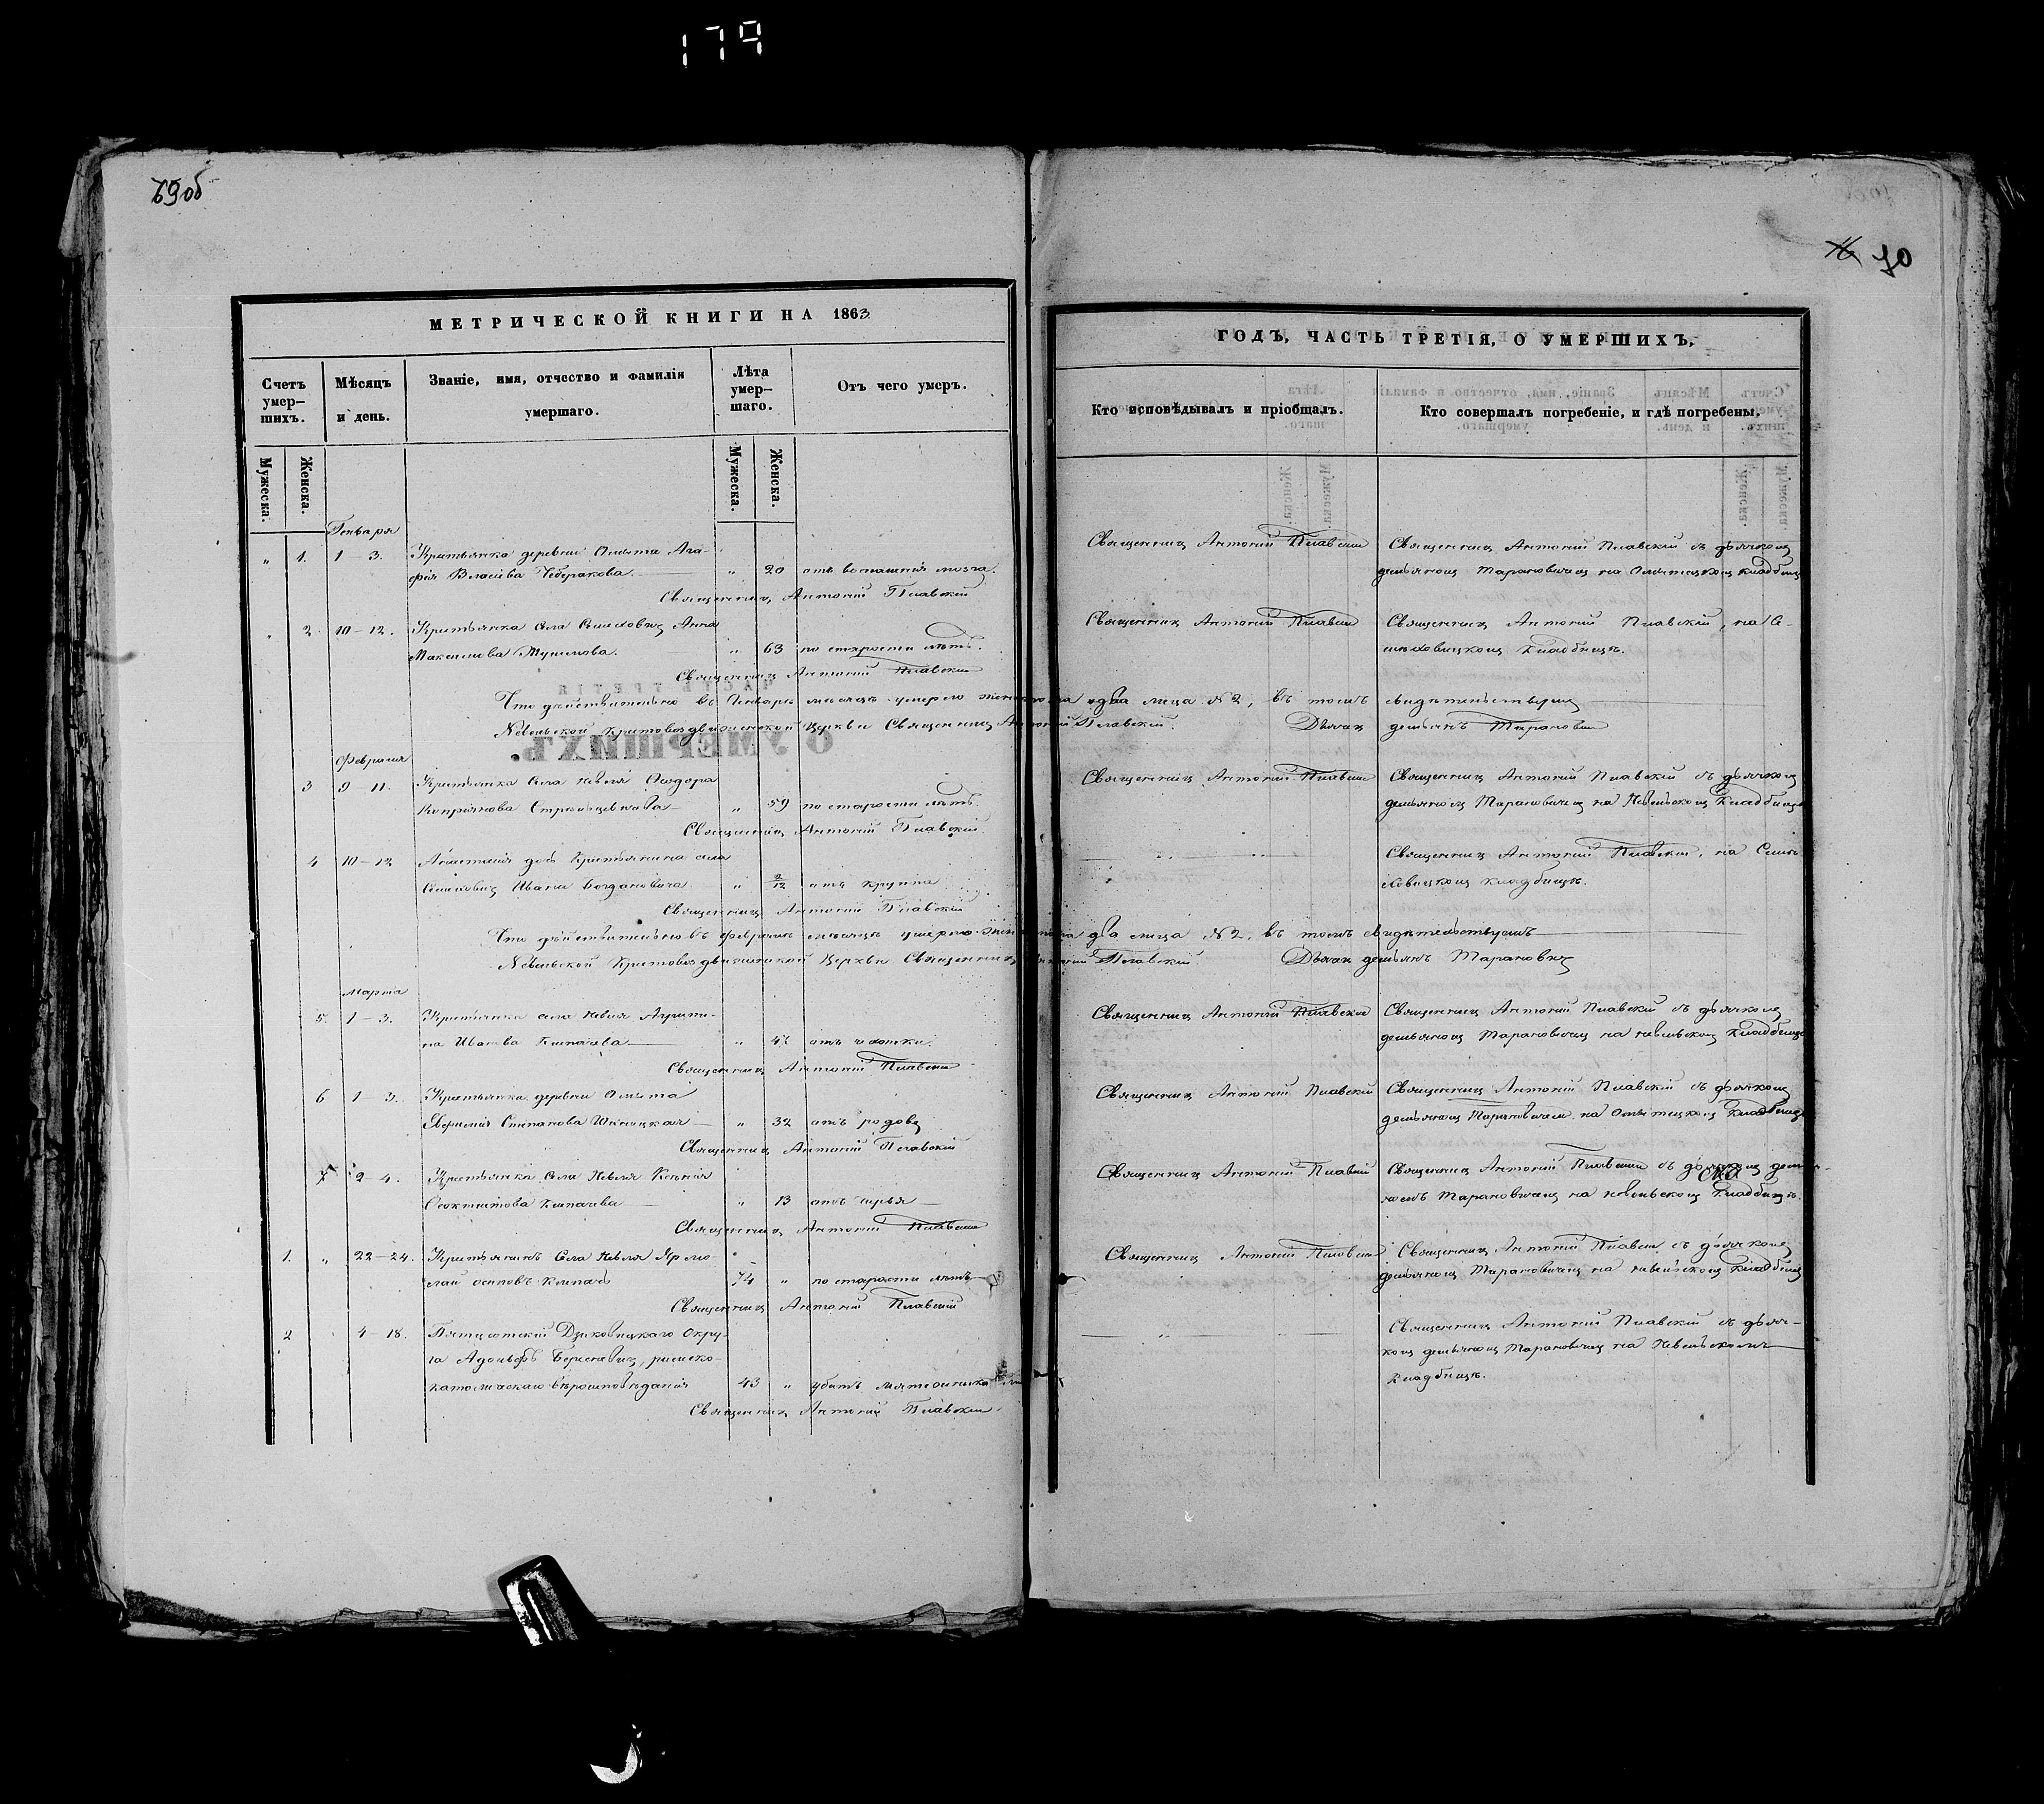 179
69об
70
МЕТРИЧЕСКОЙ КНИГИ НА 1863
Счетъ умер-шихъ.
Мѣсяцъ и день.
Званіе, имя, отчество и фамилія умершаго.
Лѣта умер-шаго.
Отъ чего умеръ.
Мужеска.
Женска.
Мужеска.
Женска.
Генваря
" 1. 1 – 3. Крестьянка деревни Омыта Ага-
фія Власіева " 20 отъ воспаленія мозга.
Священникъ Антоній Плавскій
2 10 – 12. Крестьянка села Семиховичъ Анна
Максимова " 63 по старости лѣтъ.
Священникъ Антоній Плавскій
Что дѣйствительно въ Генварѣ мѣсяцѣ умерло женскаго два лица № 2, въ томъ свидѣтельствуемъ
Невельской Крестовоздвиженской Церкви Священникъ Антоній Плавскій. Дьякъ Демьянъ Тарановичъ
Февраля
3 9 – 11. Крестьянка села Невля Ѳеодора
Кипріянова " 59 по старости лѣтъ.
Священникъ Антоній Плавскій.
4 10 – 12 Анастасія дочь Крестьянина села
Семиховичъ Ивана Богдановича " 2/12 отъ крупа
Священникъ Антоній Плавскій
Что дѣйствительно въ Февралѣ мѣсяцѣ умерло два лица № 2, въ томъ свидѣтельствуемъ
Невельской Крестовоздвиженской Церкви Священникъ Антоній Плавскій. Дьякъ Демьянъ Тарановичъ
Марта
5. 1 – 3. Крестьянка села Невля Агрипи-
на Иванова " 47 отъ чахотки.
Священникъ Антоній Плавскій
6 1 – 3. Крестьянка деревни Омыта
Степанова " 32 отъ родовъ
Священникъ Антоній Плавскій
7 2 – 4. Крестьянка села Невля Ксенія
" 13
Священникъ Антоній Плавскій
1. " 22 – 24. Крестьянинъ села Невля Ярмо-
лай Осиповъ 74 " по старости лѣтъ
Священникъ Антоній Плавскій
2 4 – 18. Дзиковицкаго Окру-
га Адольфъ римско-
католическаго вѣроисповѣданія 43 " убитъ
Священникъ Антоній Плавскій
ГОДЪ, ЧАСТЬ ТРЕТІЯ, О УМЕРШИХЪ.
Кто исповѣдывалъ и пріобщалъ.
Кто совершалъ погребеніе, и гдѣ погребены.
Священникъ Антоній Плавскій
Священникъ Антоній Плавскій съ дьячкомъ
Демьяномъ Тарановичемъ на Омытскомъ кладбищѣ
Священникъ Антоній Плавскій
Священникъ Антоній Плавскій, на Се-
миховицкомъ кладбищѣ.
Священникъ Антоній Плавскій
Священникъ Антоній Плавскій съ дьячкомъ
Демьяномъ Тарановичемъ на Невельскомъ кладбищѣ
Священникъ Антоній Плавскій, на Семи-
ховицкомъ кладбищѣ.
Священникъ Антоній Плавскій
Священникъ Антоній Плавскій съ дьячкомъ
Демьяномъ Тарановичемъ на Невельскомъ кладбищѣ
Священникъ Антоній Плавскій
Священникъ Антоній Плавскій съ дьячкомъ
Демьяномъ Тарановичемъ на Омытскомъ кладбищѣ
Священникъ Антоній Плавскій
Священникъ Антоній Плавскій съ дьячкомъ Демья-
номъ Тарановичемъ на Невельскомъ кладбищѣ.
Священникъ Антоній Плавскій
Священникъ Антоній Плавскій съ дьячкомъ
Демьяномъ Тарановичемъ на Невельскомъ кладбищѣ
Священникъ Антоній Плавскій съ дьяч-
комъ Демьяномъ Тарановичемъ на Невельскомъ
кладбищѣ.